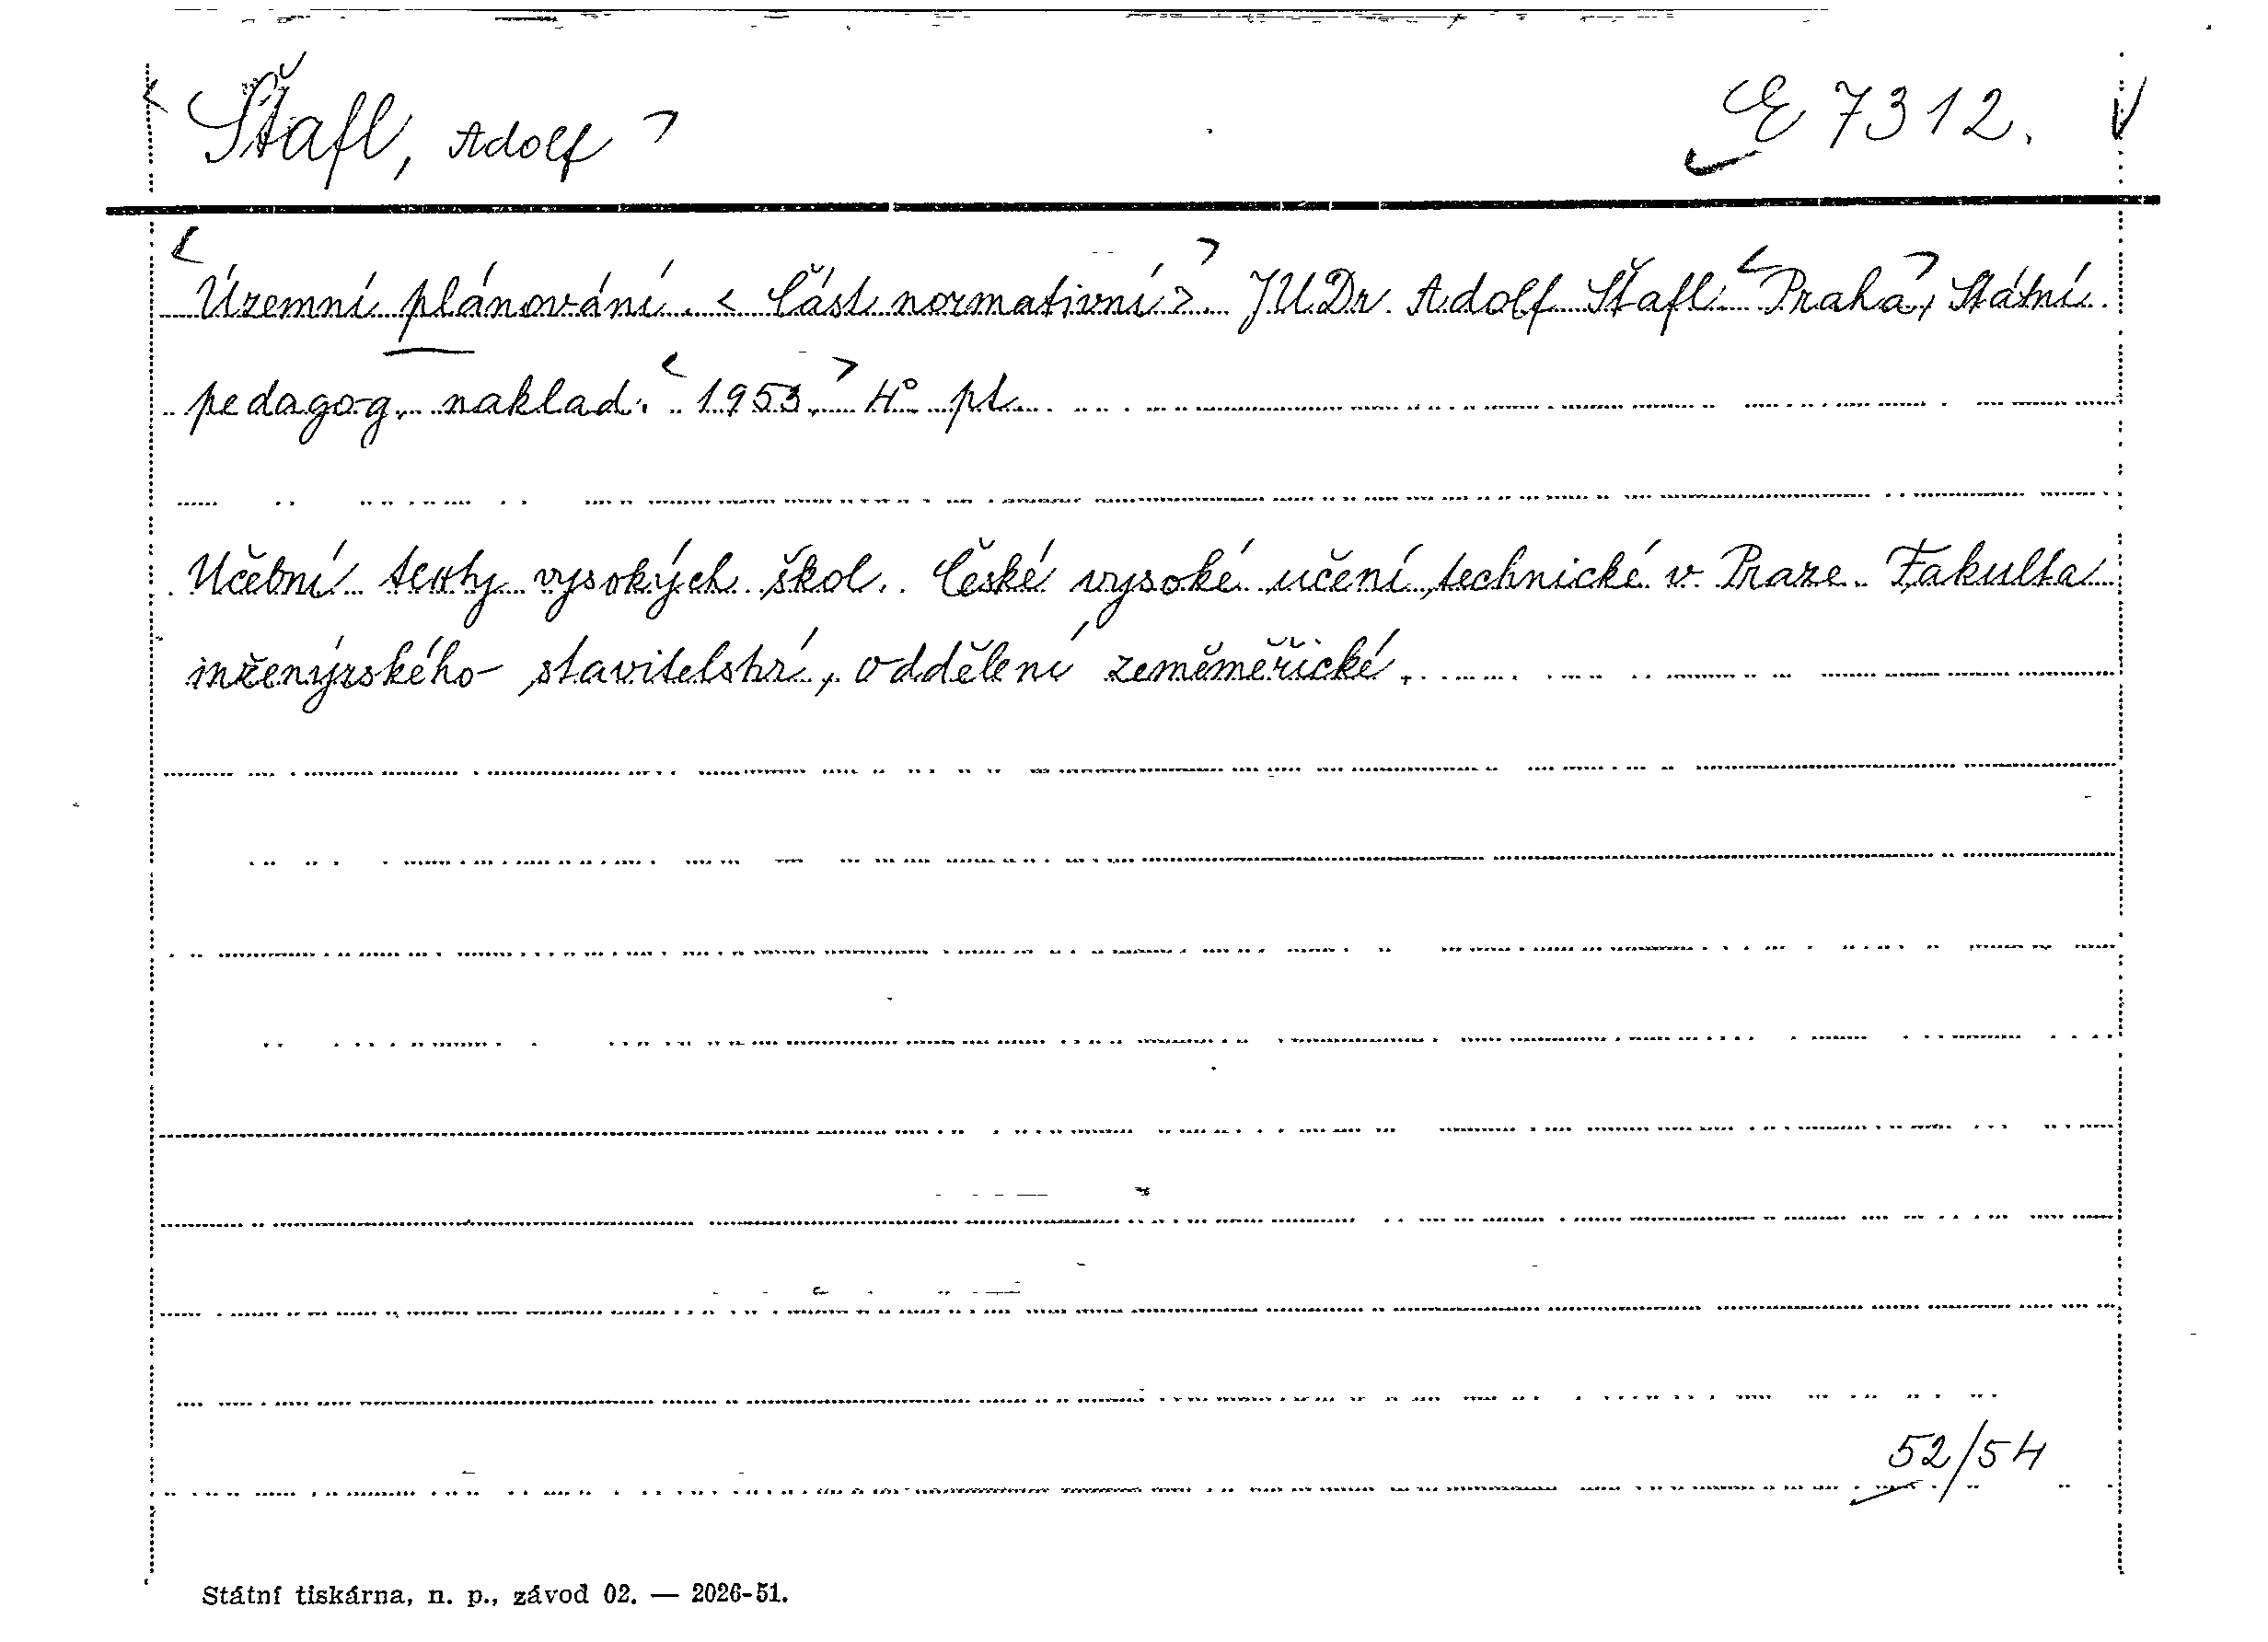 Šťafl, Adolf E 7312.
Územní plánování. < Část normativní >. JUDr. Adolf Šťafl. Praha, Státní
pedagog. naklad. 1953. 4° pl.
Učební texty vysokých škol. České vysoké učení technické v Praze. Fakulta
inženýrského stavitelství, oddělení zeměměřické.
52/54
Státní tiskárna, n. p., závod 02. — 2026-51.